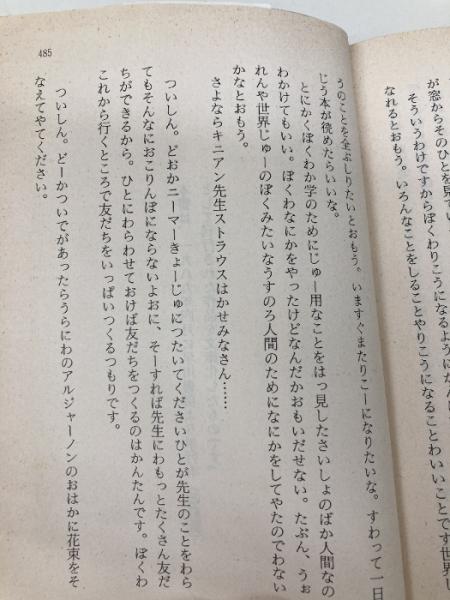 が窓からそのひとを見てい
そういうわけですからぼくわりこうになるように
なれるとおもう。いろんなことをしることやりこうになることわいいことです世界
うのことを全ぶしりたいとおもう。いますぐまたりこーになりたいな。すわって一日
じう本が讀めたらいいな。
とにかくぼくわか学のためにじゅー用なことをはっ見したさいしょのばか人間なの
わかけてもいい。ぼくわなにかをやったけどなんだかおもいだせない。たぶん、うぉ
れんや世界じゅーのぼくみたいなうすのろ人間のためになにかをしてやたのでわない
かなとおもう。
さよならキニアン先生ストラウスはかせみなさん……
ついしん。どおかニーマーきょーじゅにつたいてくださいひとが先生のことをわら
てもそんなにおこりんぼにならないよおに、そーすれば先生にわもっとたくさん友だ
ちができるから。ひとにわらわせておけば友だちをつくるのはかんたんです。ぼくわ
これから行くところで友だちをいっぱいつくるつもりです。
ついしん。どーかついでがあったらうらにわのアルジャーノンのおはかに花束をそ
なえてやてください。
485